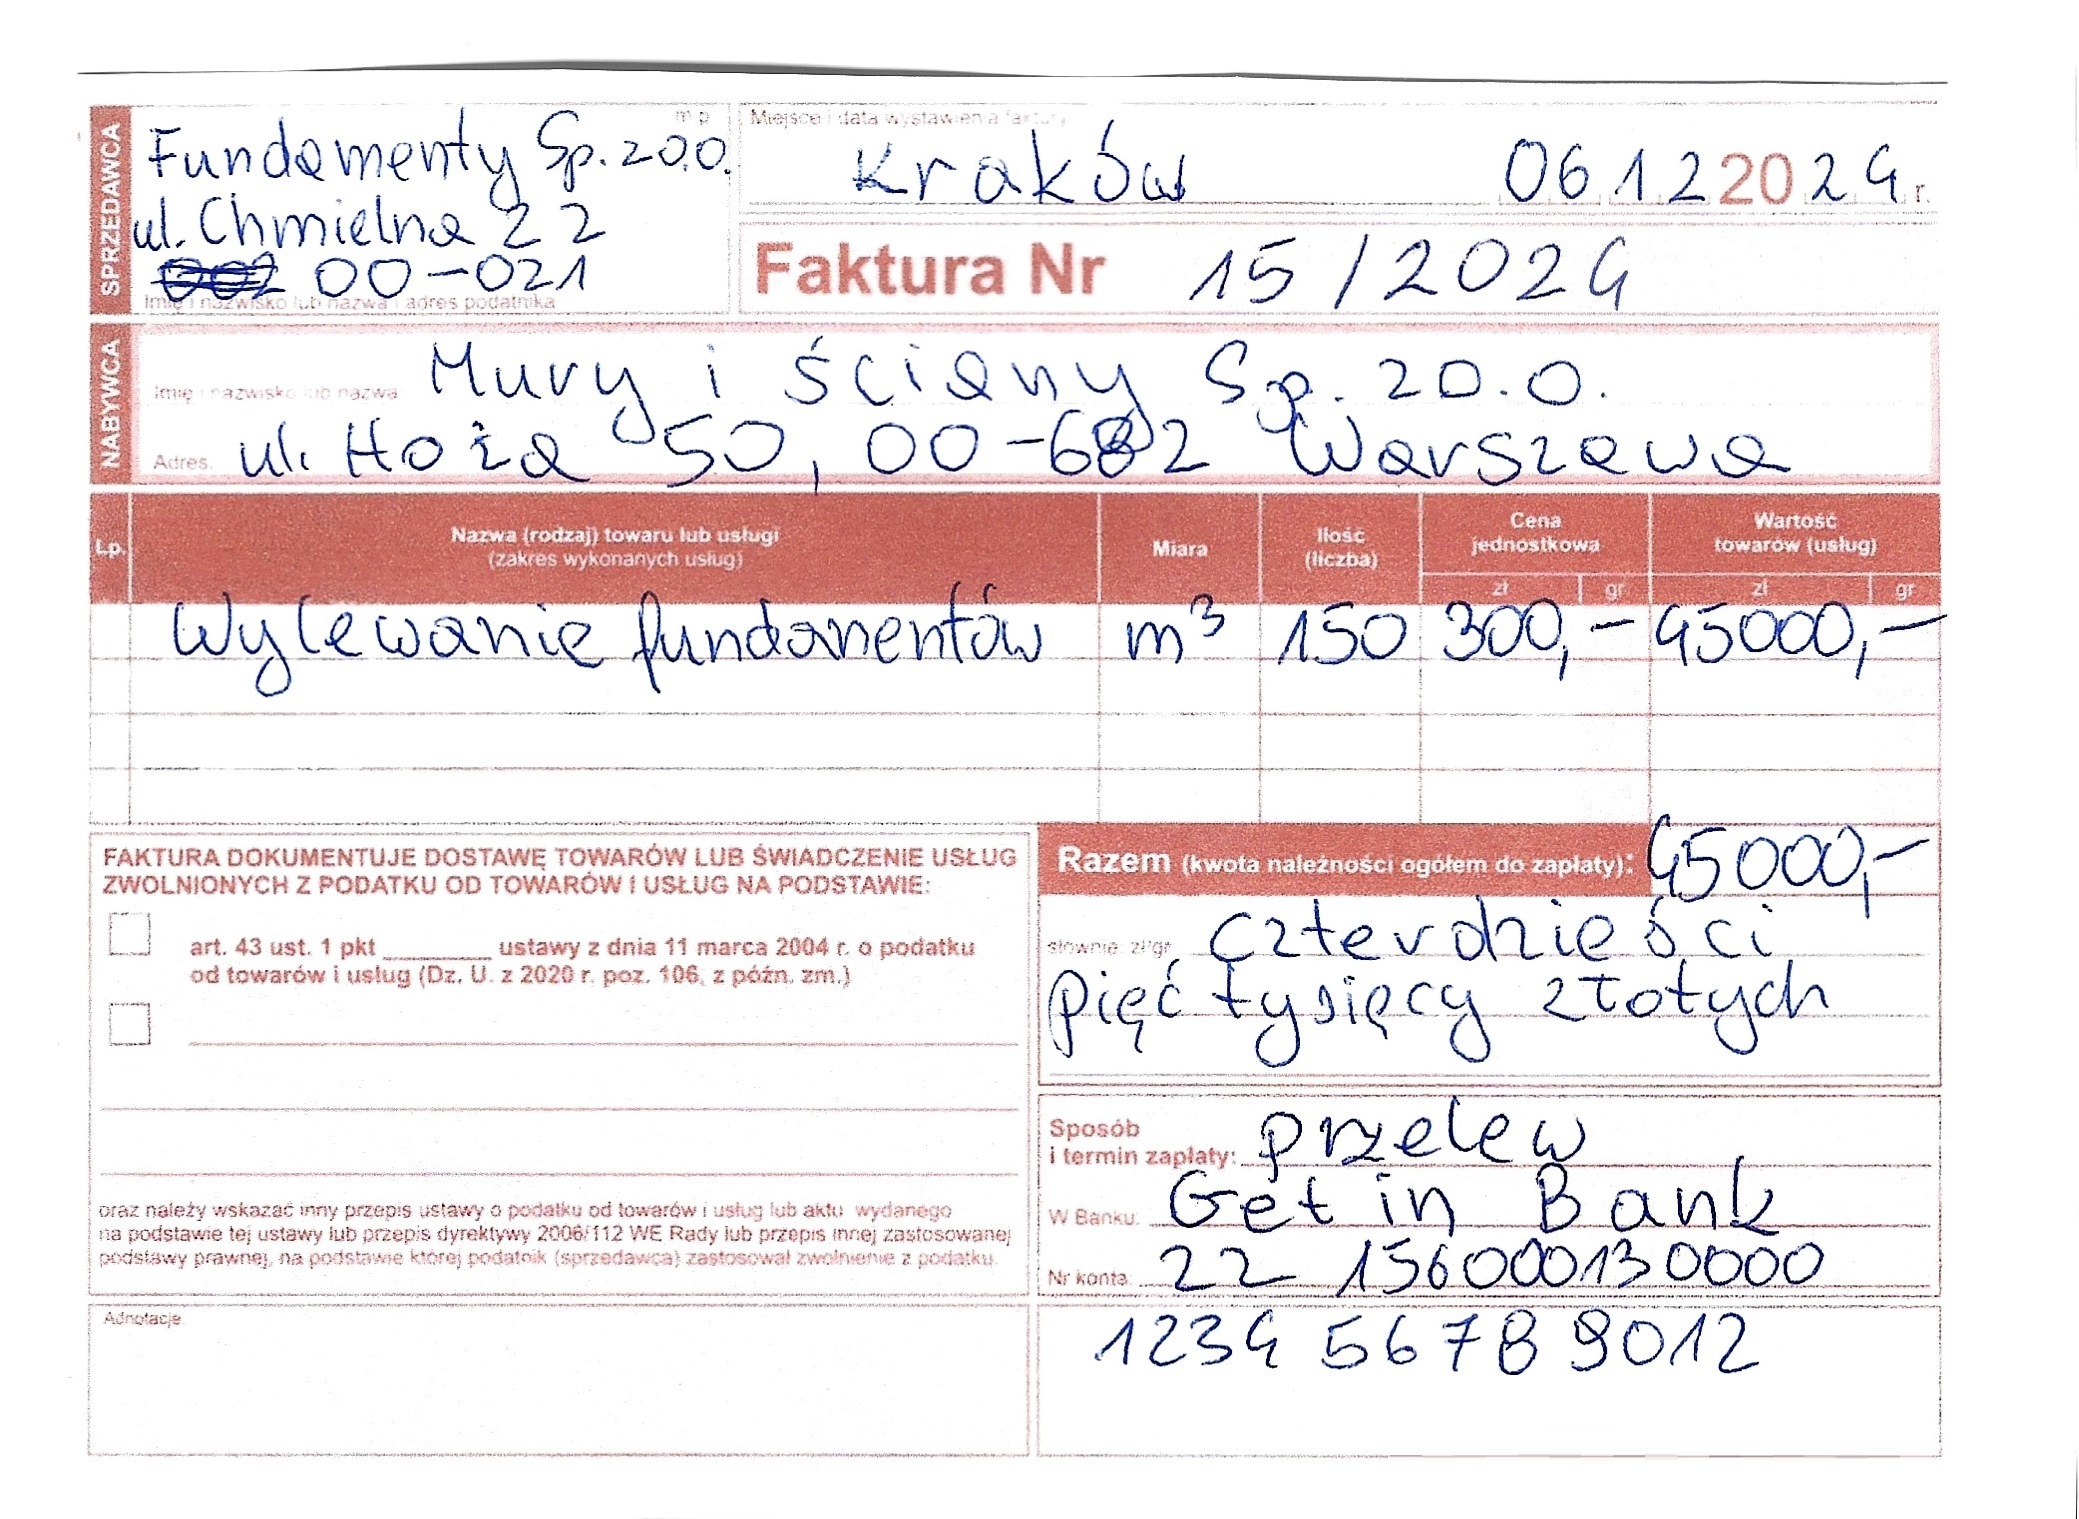 SPRZEDAWCA
Fundamenty Sp. z o.o.
m.p.
ul. Chmielna 22
00-021
Imię i nazwisko lub nazwa i adres podatnika
Miejsce i data wystawienia faktury
Kraków 06 12 2024 r.
Faktura Nr 15/2024
NABYWCA
Imię i nazwisko lub nazwa Mury i ściany Sp. z o.o.
Adres ul. Hoża 50, 00-682 Warszawa
Lp.
Nazwa (rodzaj) towaru lub usługi
(zakres wykonanych usług)
Miara
Ilość
(liczba)
Cena
jednostkowa
zł gr
Wartość
towarów (usług)
zł gr
Wylewanie fundamentów m³ 150 300,- 45000,-
FAKTURA DOKUMENTUJE DOSTAWĘ TOWARÓW LUB ŚWIADCZENIE USŁUG
ZWOLNIONYCH Z PODATKU OD TOWARÓW I USŁUG NA PODSTAWIE:
art. 43 ust. 1 pkt ________ ustawy z dnia 11 marca 2004 r. o podatku
od towarów i usług (Dz. U. z 2020 r. poz. 106, z późn. zm.)
oraz należy wskazać inny przepis ustawy o podatku od towarów i usług lub aktu wydanego
na podstawie tej ustawy lub przepis dyrektywy 2006/112 WE Rady lub przepis innej zastosowanej
podstawy prawnej, na podstawie której podatnik (sprzedawca) zastosował zwolnienie z podatku.
Adnotacje
Razem (kwota należności ogółem do zapłaty): 45000,-
słownie: zł/gr czterdzieści
pięć tysięcy złotych
Sposób
i termin zapłaty: przelew
W Banku: Get in Bank
Nr konta 22 156000130000
1234 5678 9012